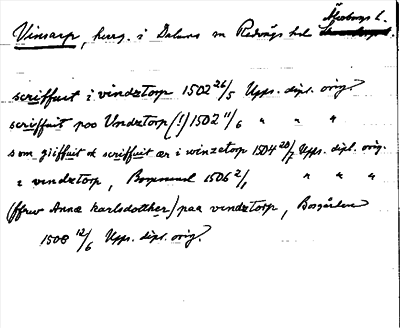 Älvsborgs l.
Vinsarp, herrg. i Dalums sn Redvägs hd
scriffuit i vindztorp 1502 26/5 Upps. dipl. orig.
scriffuit poo Vndztorp (!) 1502 11/6 " " "
som giiffuit ok scriffuit ær i winzetorp 1504 20/7 Upps. dipl. orig.
i vendztorp, 1506 2/1 " " "
(ffrw Anna karlsdotther) paa vendztorp, Bosgården
1508 12/6 Upps. dipl. orig.